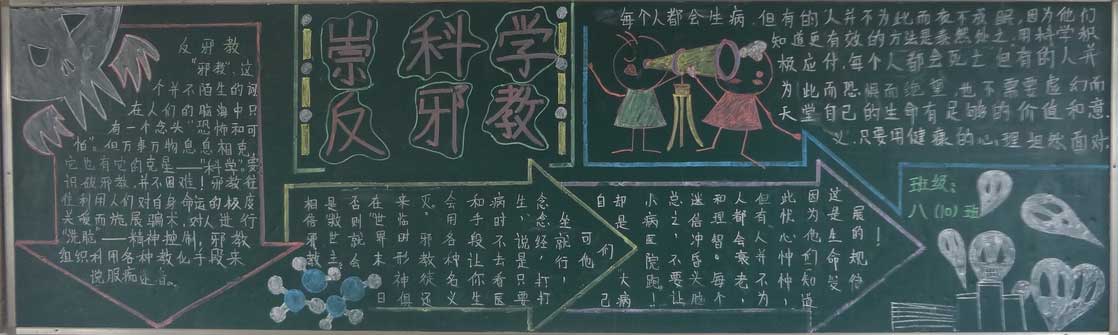 反邪教
"邪教",这
个并不陌生的词
在人们的脑海中只
有一个念头"恐怖和可
怕"但万事万物息息相克,
它也有它的克星——"科学"要
识破邪教,并不困难!邪教往
往利用人们对自身命运的极度
关爱而施展骗术,对人进行
"洗脑"——精神控制,邪教
组织利用各种教化手段来
说服痴迷者。
崇科学
反邪教
每个人都会生病,但有的人并不为此而夜不成眠,因为他们
知道更有效的方法是泰然处之,用科学积
极应付,每个人都会死亡但有的人并
为此而恐惧而绝望,也不需要虚幻而
天堂自己的生命有足够的价值和意
义,只要用健康的心理坦然面对.
展的规律!
这是生命发
因为他们知道
此忧心忡忡,
但有人并不为
人都会衰老,
和理智。每个
迷信冲昏头脑
总之,不要让
小病医院跑!
却是"大病
自己
可他们
坐就行,
念念经,打打
生,说是只要
病时不去看医
和手段让你生
会用各种名义
灭。邪教徒还
来临时形神俱
在"世界末日"
否则就会
是"救世主"
相信教主
班级:
八(10)班